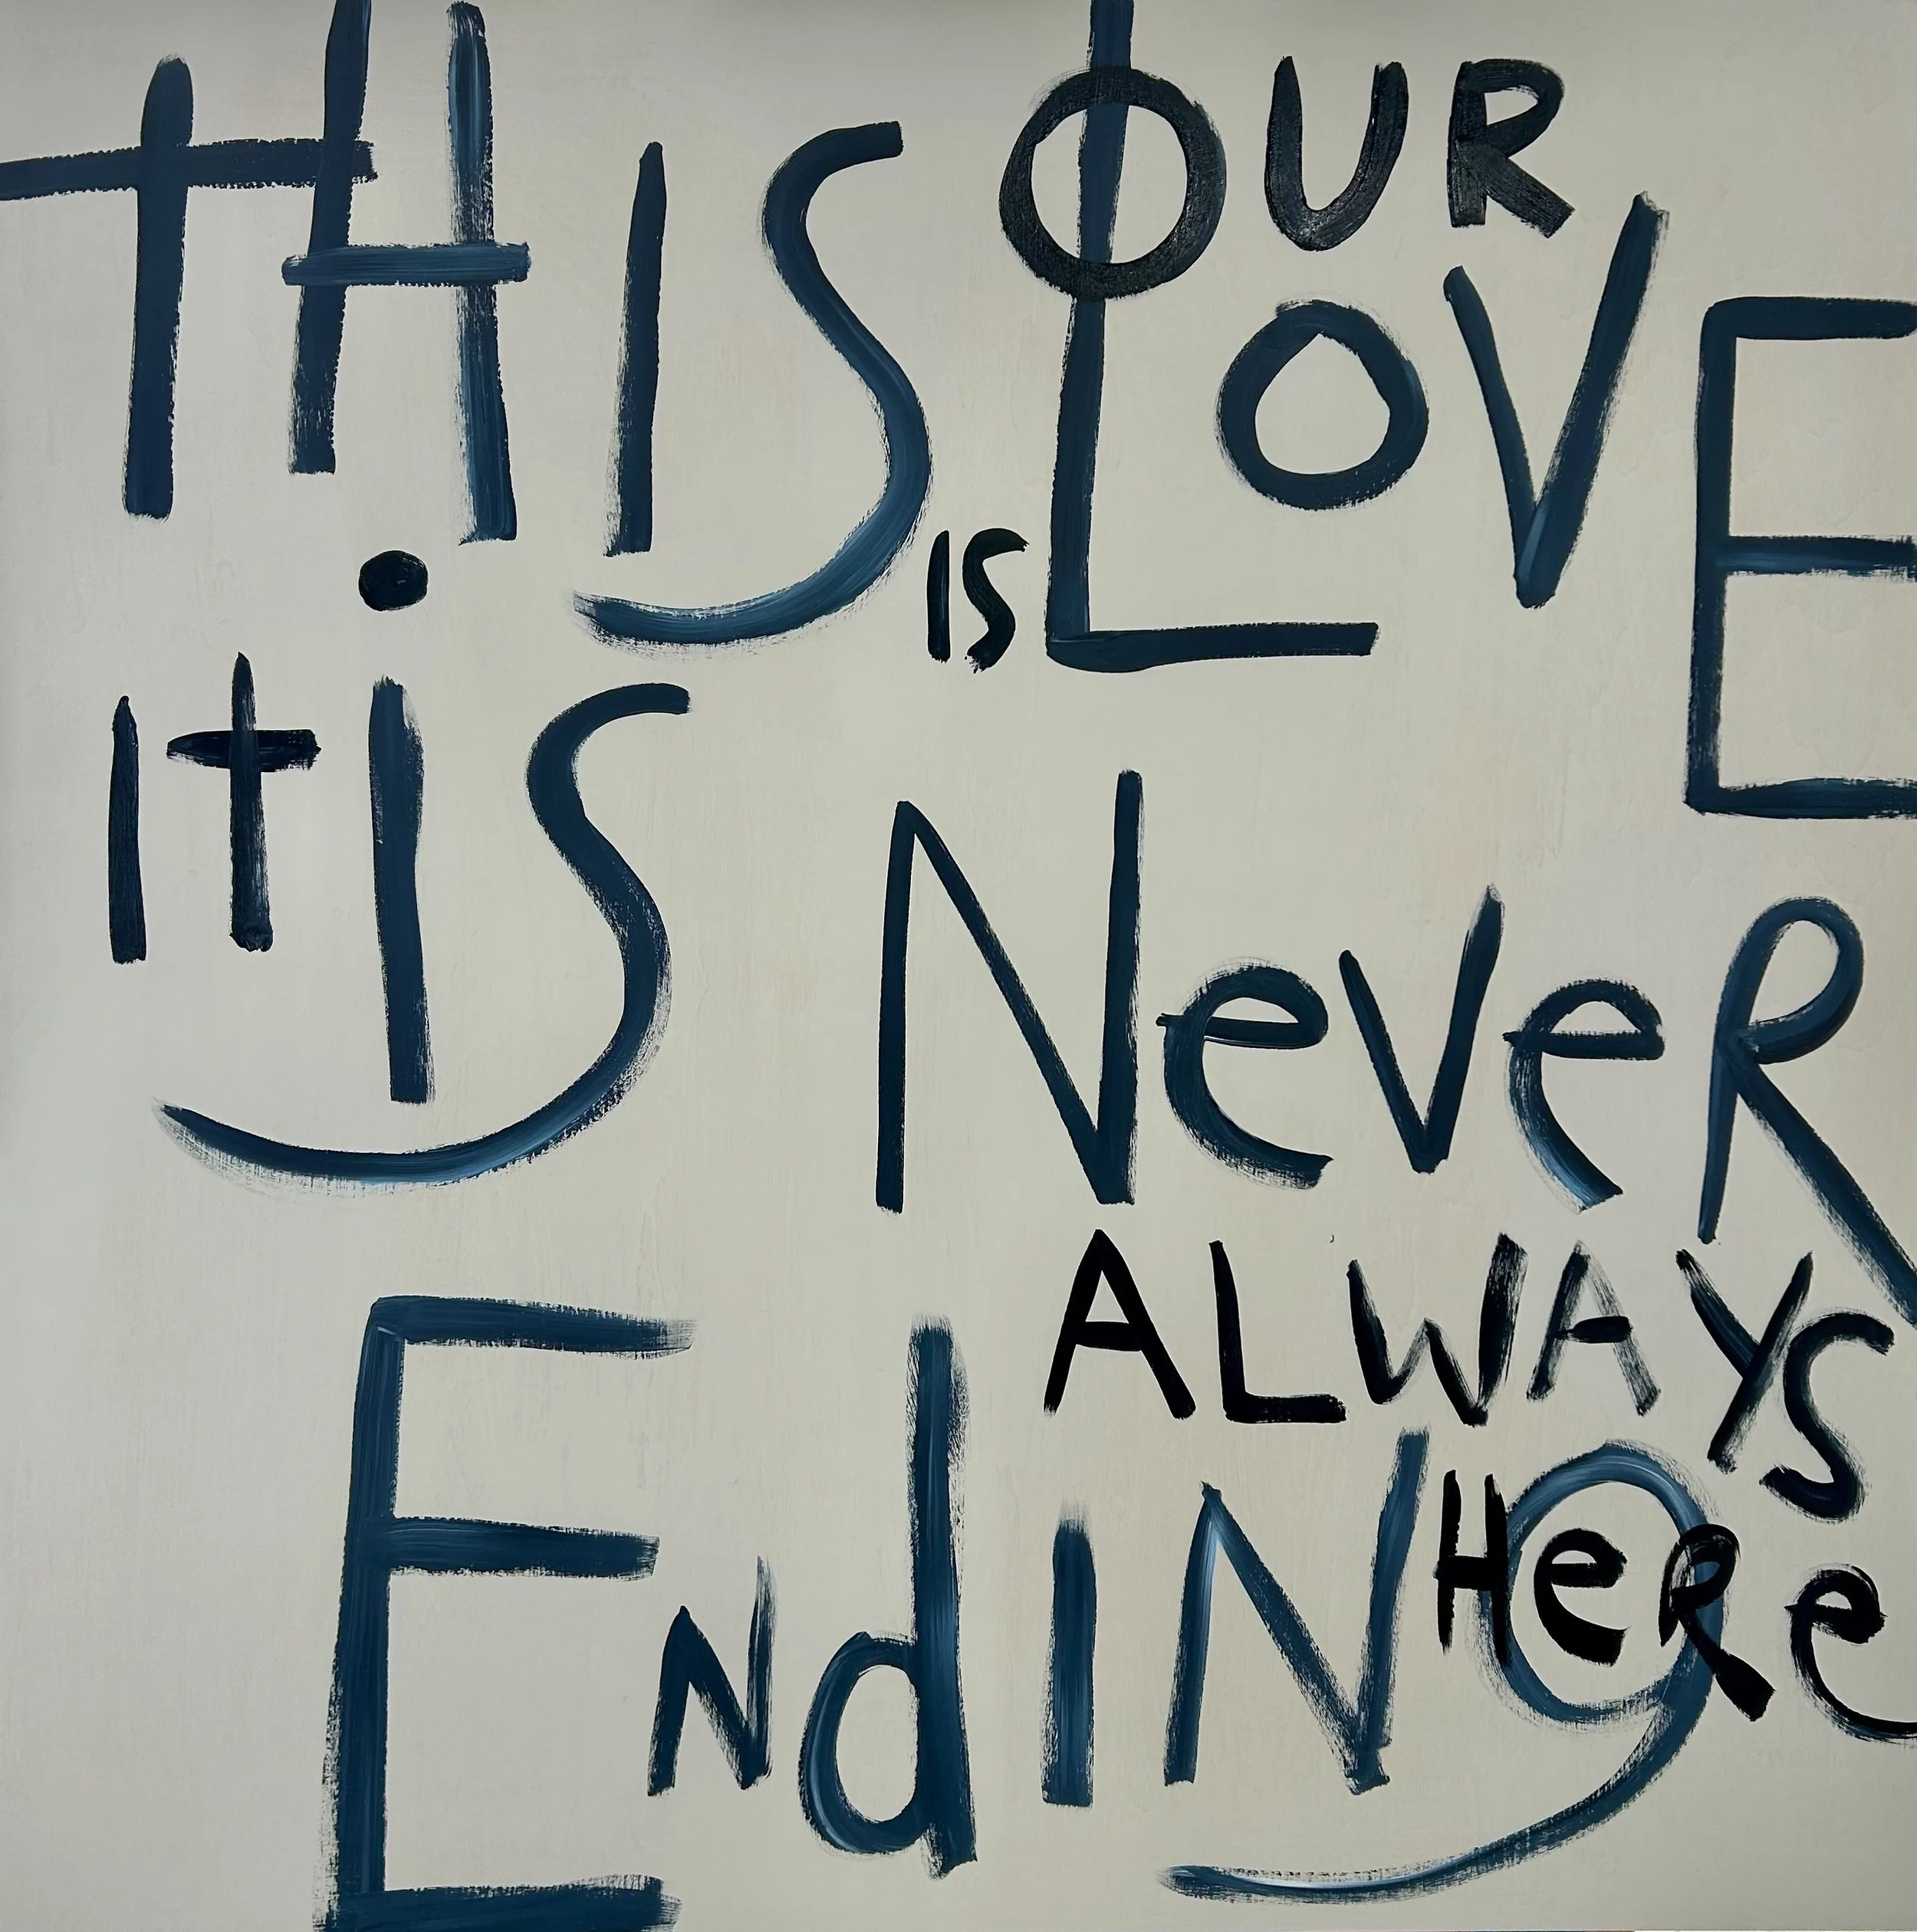 tHIS IS OUR
LOVE
It iS NeveR
ALWAYS
ENdINg HeRe